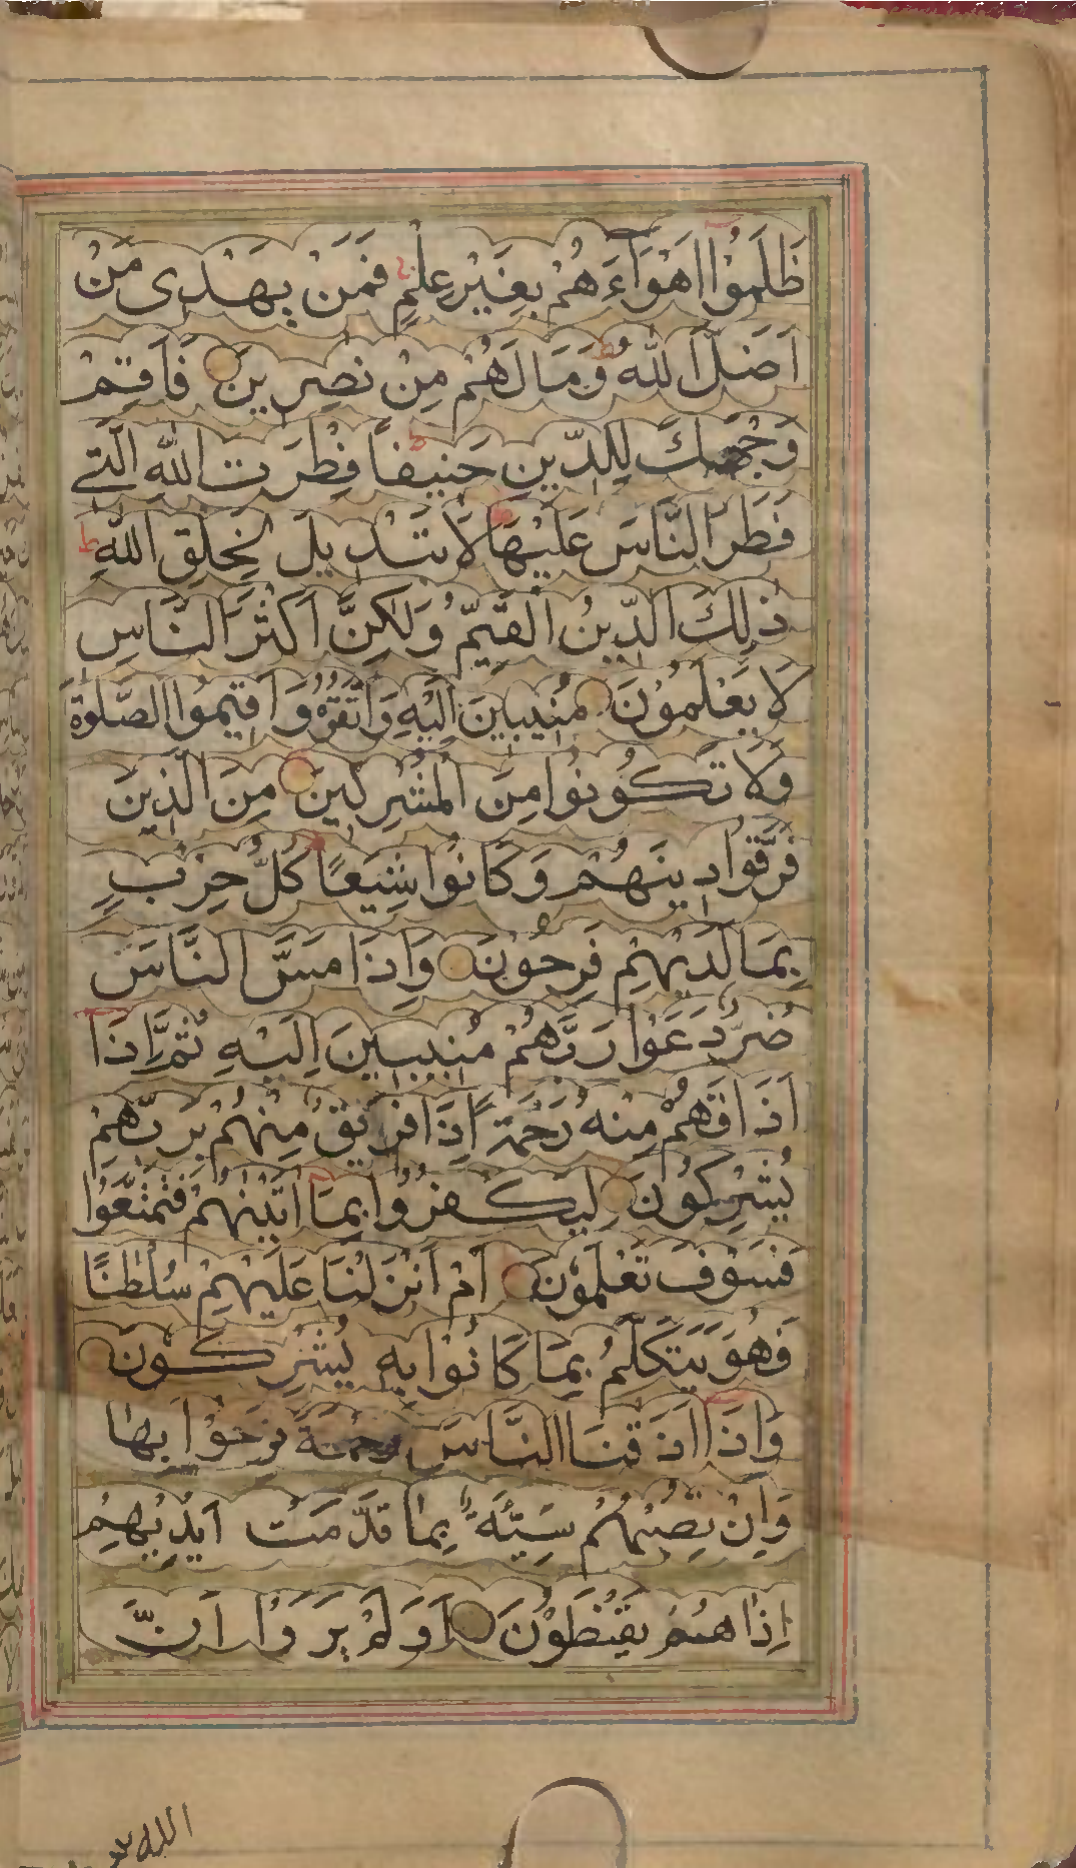 ظَلَمُوْا اَهْوَآءَهُمْ بِغَيْرِ عِلْمٍ فَمَنْ يَهْدِى مَنْ
اَضَلَّ اللّٰهُ وَمَا لَهُمْ مِنْ نٰصِرِينَ فَاَقِمْ
وَجْهَكَ لِلدِّينِ حَنِيفاً فِطْرَتَ اللّٰهِ الَّتِى
فَطَرَ النَّاسَ عَلَيْهَا لَا تَبْدِيلَ لِخَلْقِ اللّٰهِ
ذٰلِكَ الدِّينُ الْقَيِّمُ وَلٰكِنَّ اَكْثَرَ النَّاسِ
لَا يَعْلَمُوْنَ مُنِيبِينَ اِلَيْهِ وَاتَّقُوْهُ وَاَقِيمُوا الصَّلٰوةَ
وَلَا تَكُونُوْا مِنَ الْمُشْرِكِينَ مِنَ الَّذِينَ
فَرَّقُوا دِينَهُمْ وَكَانُوا شِيَعًا كُلُّ حِزْبٍ
بِمَا لَدَيْهِمْ فَرِحُوْنَ وَاِذَا مَسَّ النَّاسَ
ضُرٌّ دَعَوْا رَبَّهُمْ مُنِيبِينَ اِلَيْهِ ثُمَّ اِذَا
اَذَاقَهُمْ مِنْهُ رَحْمَةً اِذَا فَرِيقٌ مِنْهُمْ بِرَبِّهِمْ
يُشْرِكُونَ لِيَكْفُرُوْا بِمَا اٰتَيْنٰهُمْ فَتَمَتَّعُوْا
فَسَوْفَ تَعْلَمُوْنَ اَمْ اَنْزَلْنَا عَلَيْهِمْ سُلْطٰنًا
فَهُوَ يَتَكَلَّمُ بِمَا كَانُوْا بِهِ يُشْرِكُونَ
وَاِذَا اَذَقْنَا النَّاسَ رَحْمَةً فَرِحُوْا بِهَا
وَاِنْ تُصِبْهُمْ سَيِّئَةٌ بِمَا قَدَّمَتْ اَيْدِيْهِمْ
اِذَا هُمْ يَقْنَطُوْنَ اَوَلَمْ يَرَوْا اَنَّ